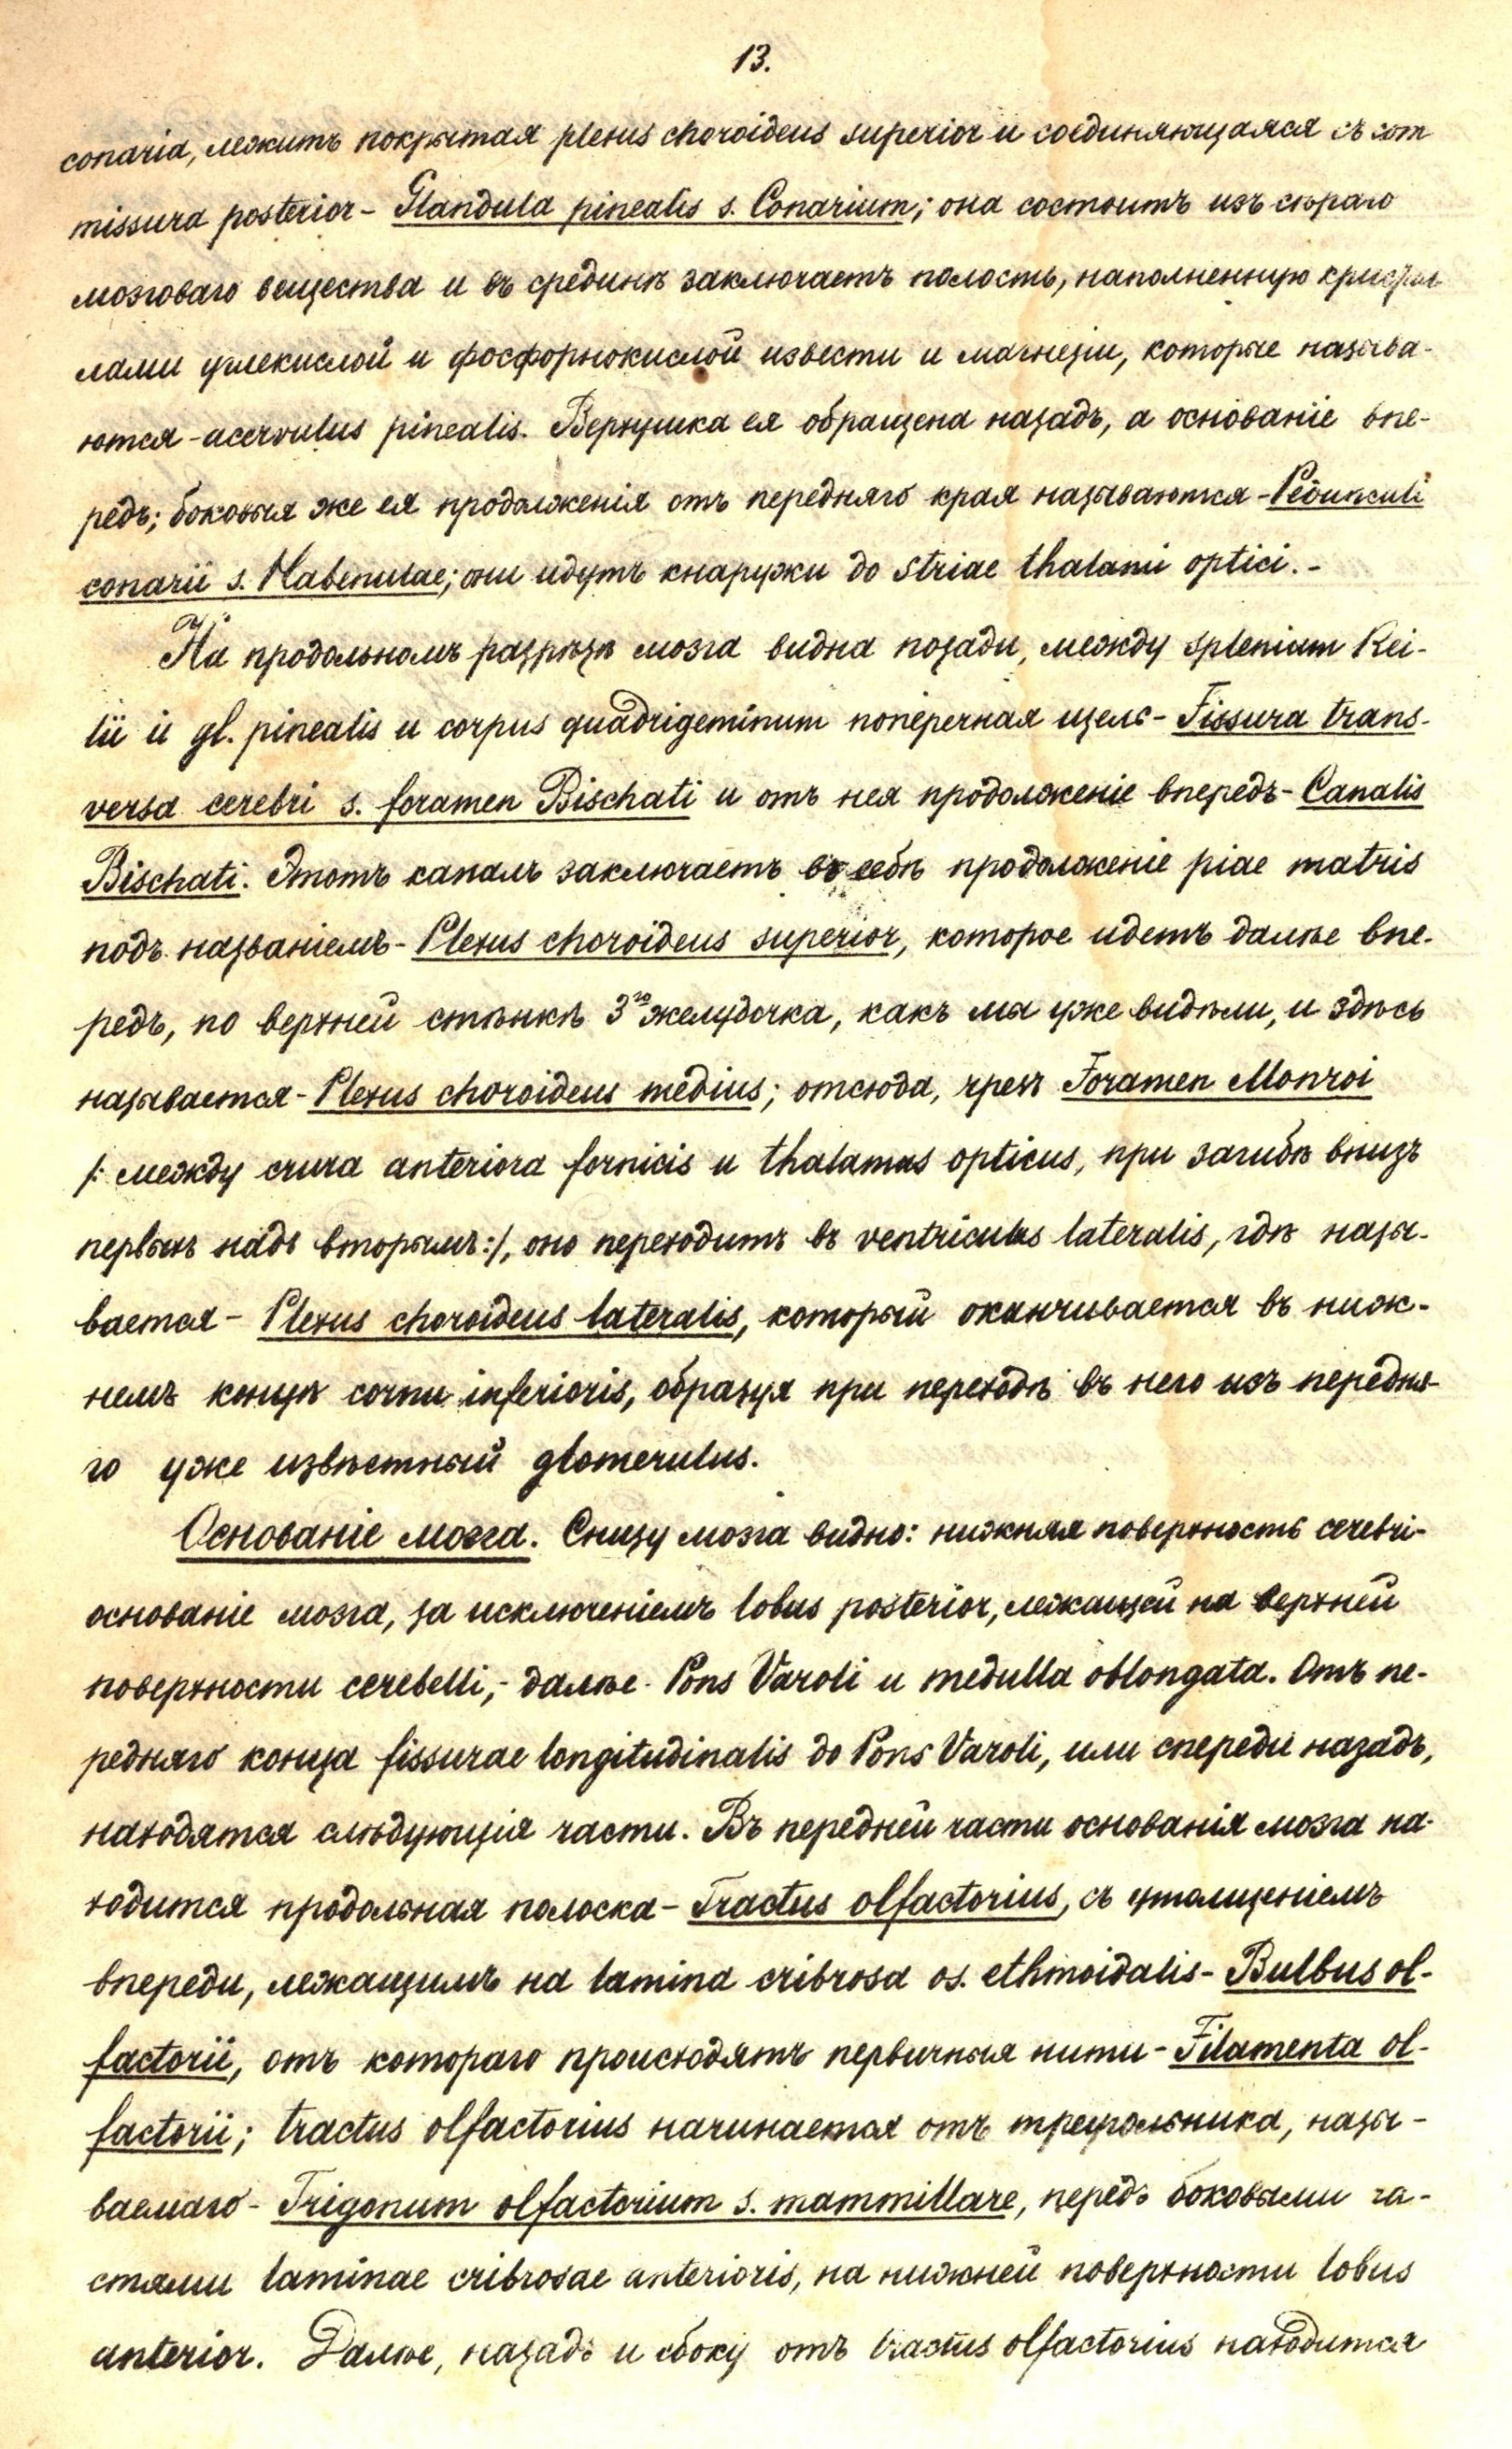 13.
conaria, лежитъ покрытая plexus choroideus superior и соединяющаяся съ com
missura posterior - Glandula pinealis s. Conarium; она состоитъ изъ сѣраго
мозговаго вещества и въ срединѣ заключаетъ полость, наполненную кристал
лами углекислой и фосфорнокислой извести и магнезіи, которые называ-
ются - acervulus pinealis. Верхушка ея обращена назадъ, а основаніе впе-
редъ; боковыя же ея продолженія отъ передняго края называются - Pedunculi
conarii s. Habenulae; они идутъ кнаружи до striae thalami optici. -
На продольномъ разрѣзѣ мозга видна позади, между splenium Rei-
lii и gl. pinealis и corpus quadrigeminum поперечная щель - Fissura trans-
versa cerebri s. foramen Bischati и отъ нея продолженіе впередъ - Canalis
Bischati. Этотъ каналъ заключаетъ въ себѣ продолженіе piae matris
подъ названіемъ - Plexus choroideus superior, которое идетъ далѣе впе-
редъ, по верхней стѣнкѣ 3го желудочка, какъ мы уже видѣли, и здѣсь
называется - Plexus choroideus medius; отсюда, чрезъ Foramen Monroi
/: между crura anteriora fornicis и thalamus opticus, при загибѣ внизъ
первыхъ надъ вторымъ:/, оно переходитъ въ ventriculus lateralis, гдѣ назы-
вается - Plexus choroideus lateralis, который оканчивается въ ниж-
немъ концѣ cornu inferioris, образуя при переходѣ въ него изъ передня-
го уже извѣстный glomerulus.
Основаніе мозга. Снизу мозга видно: нижняя поверхность cerebri -
основаніе мозга, за исключеніемъ lobus posterior, лежащей на верхней
поверхности cerebelli, - далѣе - Pons Varoli и medulla oblongata. Отъ пе-
редняго конца fissurae longitudinalis до Pons Varoli, или спереди назадъ,
находятся слѣдующія части. Въ передней части основанія мозга на-
ходится продольная полоска - Tractus olfactorius, съ утолщеніемъ
впереди, лежащимъ на lamina cribrosa os. ethmoidalis - Bulbus ol-
factorii, отъ котораго происходятъ первичныя нити - Filamenta ol-
factorii; tractus olfactorius начинается отъ треугольника, назы-
ваемаго - Trigonum olfactorium s. mammillare, передъ боковыми ча-
стями laminae cribrosae anterioris, на нижней поверхности lobus
anterior. Далѣе, назадъ и сбоку отъ tractus olfactorius находится